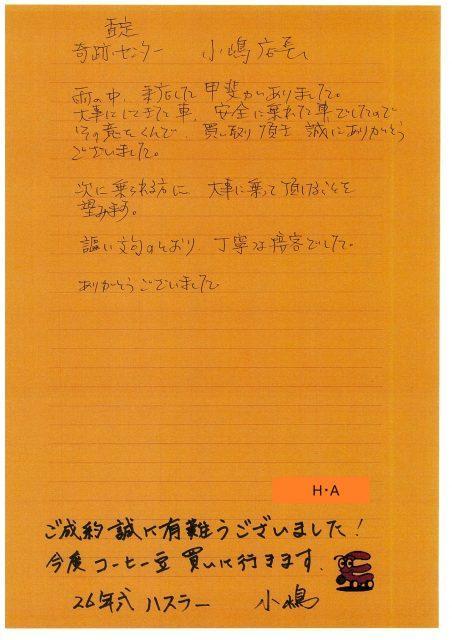 査定
奇跡センター　小嶋店長
雨の中、来店した甲斐がありました。
大事にしてきた車、安全に乗れた車でしたので
その意をくんで、買い取り頂き 誠にありがとう
ございました。
次に乗られる方に、大事に乗って頂けることを
望みます。
謳い文句のとおり、丁寧な接客でした。
ありがとうございました
H・A
ご成約誠に有難うございました！
今度コーヒー豆買いに行きます。
26年式 ハスラー 小嶋